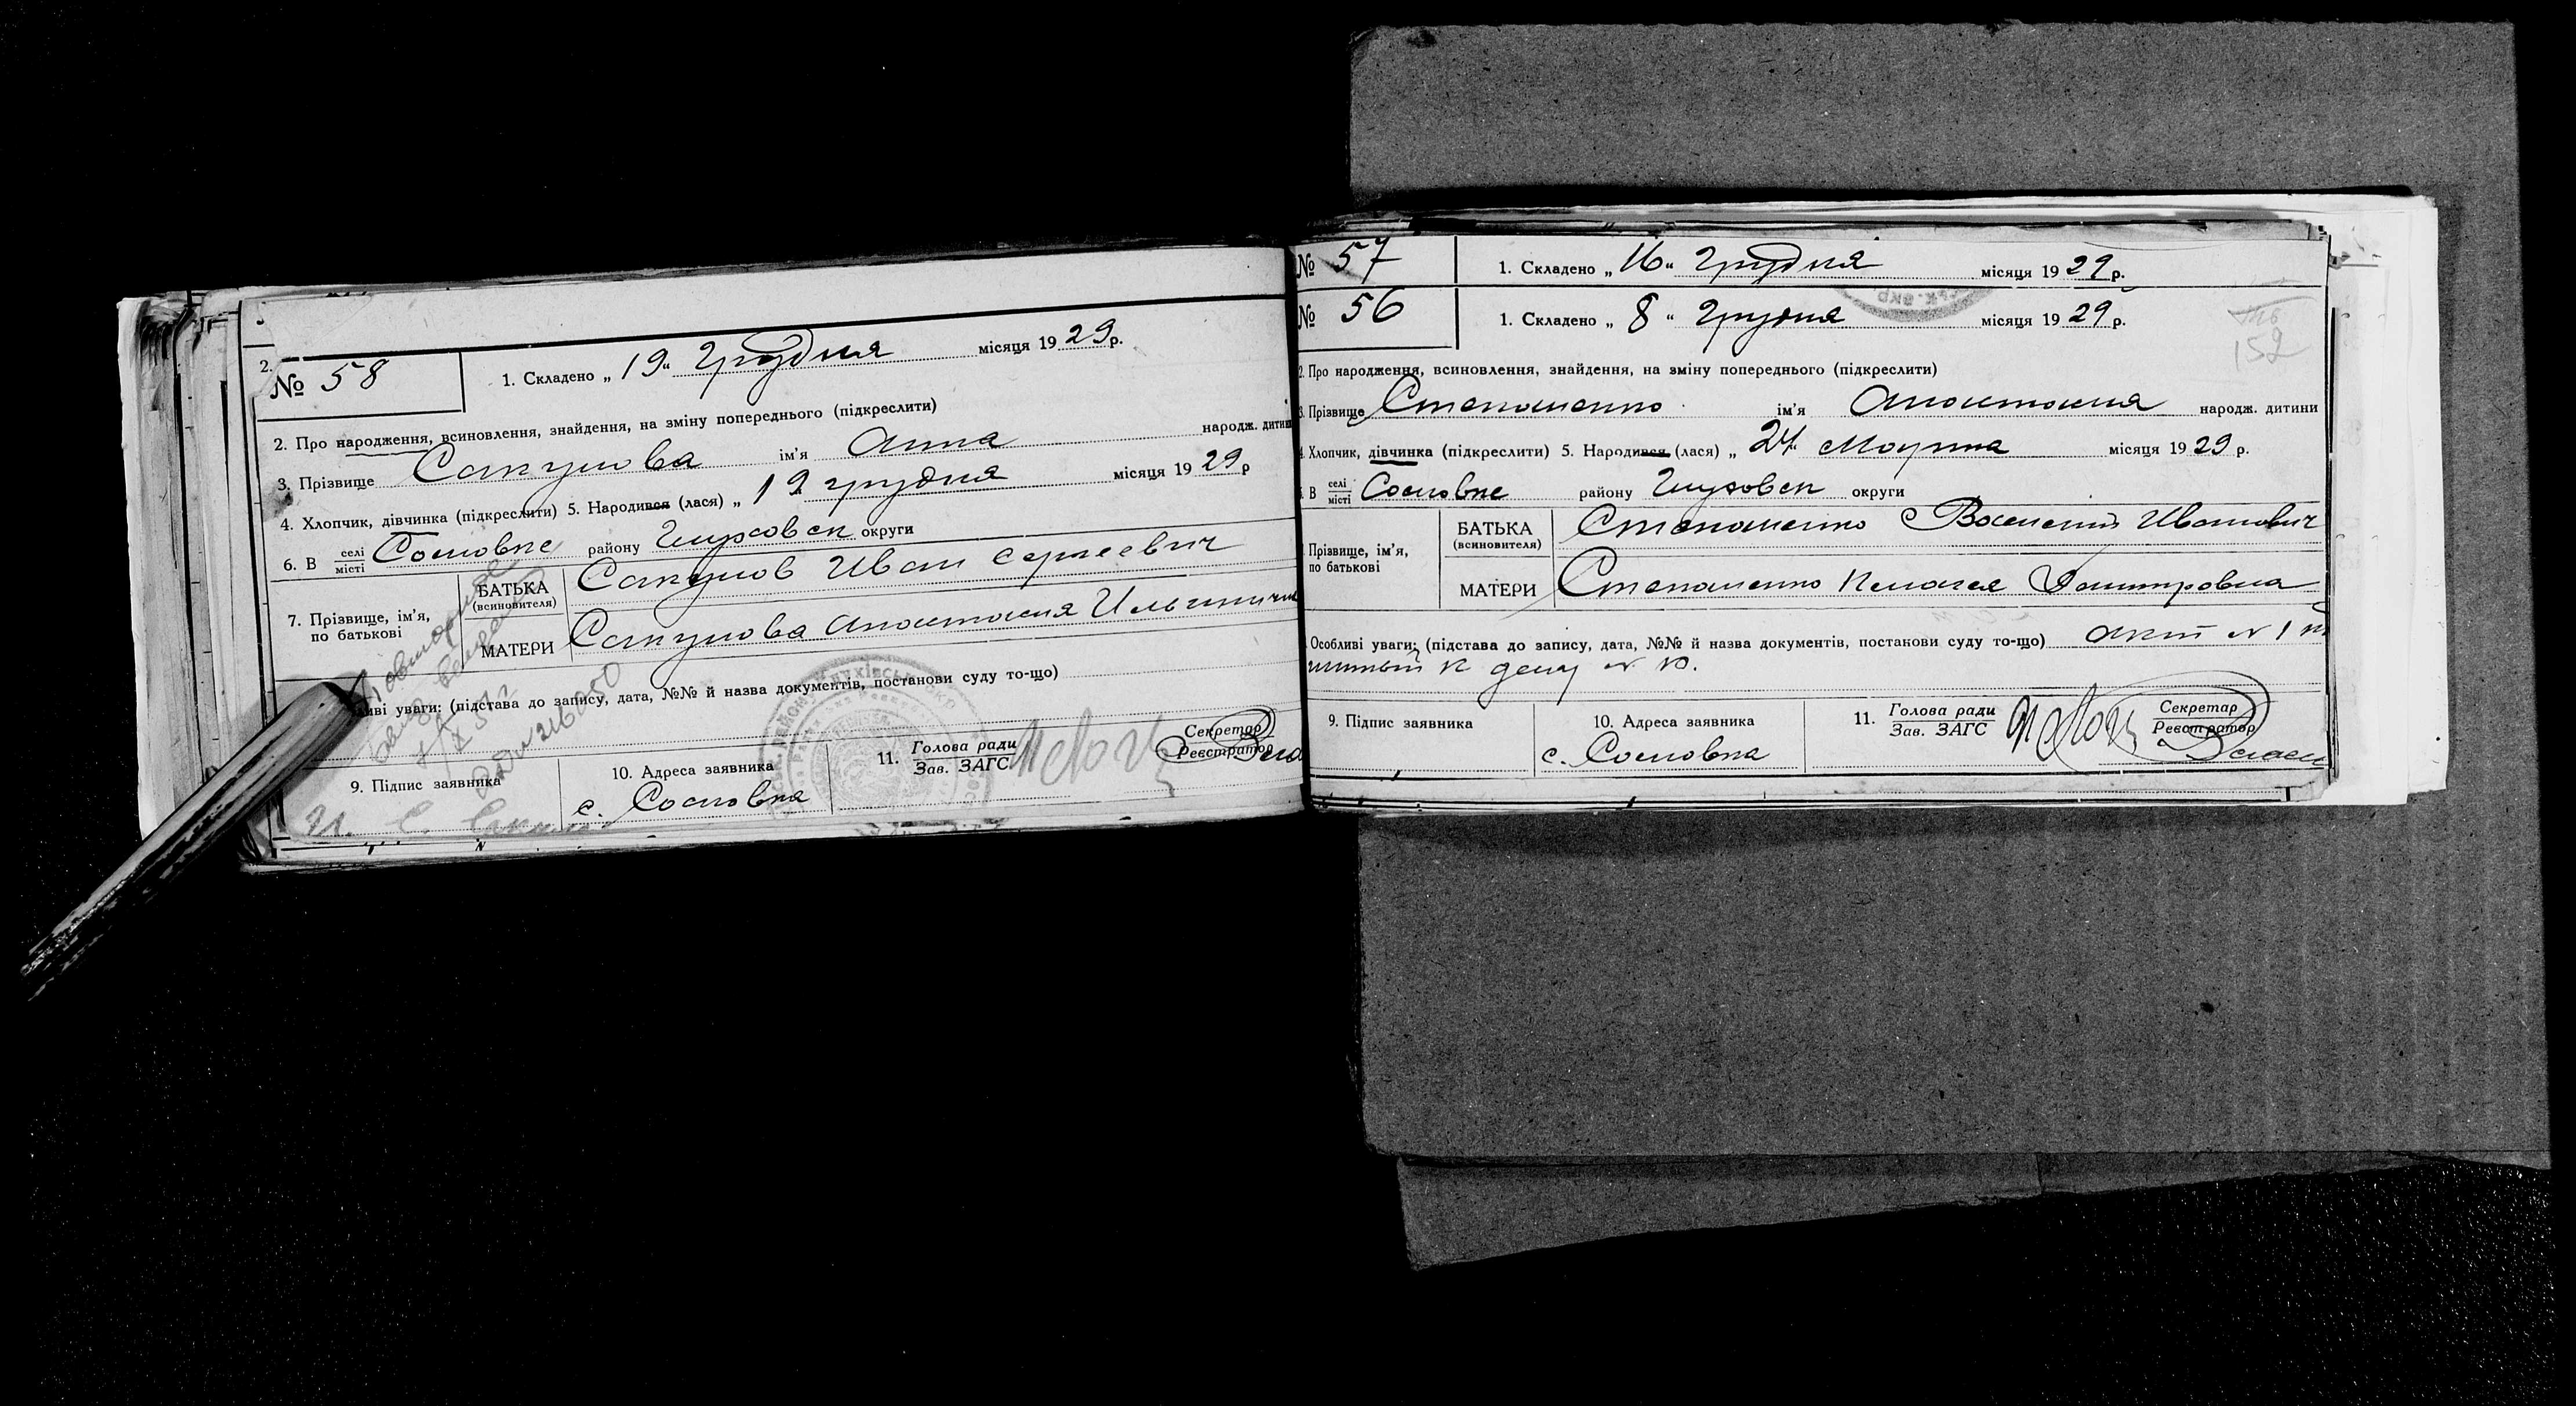 2.
№ 58
1. Складено „ 19 “ грудня місяця 1929 р.
2. Про народження, всиновлення, знайдення, на зміну попереднього (підкреслити)
3. Прізвище Сапунова ім'я Анна народж. дитини
4. Хлопчик, дівчинка (підкреслити) 5. Народився (лася) „ 12 грудня місяця 1929 р
6. В селі/місті Сосновке району Глуховск округи
7. Прізвище, ім'я, по батькові
БАТЬКА (всиновителя) Сапунов Иван Сергеевич
МАТЕРИ Сапунова Анастасия
уваги: (підстава до запису, дата, №№ й назва документів, постанови суду то-що)
9. Підпис заявника
10. Адреса заявника
с. Сосновка
11. Голова ради
Зав. ЗАГС
Секретар
Реєстратор
№ 57
1. Складено „ 16 “ грудня місяця 1929 р.
№ 56
1. Складено „ 8 “ грудня місяця 1929 р.
152
2. Про народження, всиновлення, знайдення, на зміну попереднього (підкреслити)
3. Прізвище Степаненко ім'я Анастасия народж. дитини
4. Хлопчик, дівчинка (підкреслити) 5. Народився (лася) „ 24 “ Марта місяця 1929 р.
В селі/місті Сосновке району Глуховск округи
Прізвище, ім'я, по батькові
БАТЬКА (всиновителя) Степаненко Василий Иванович
МАТЕРИ Степаненко Пелагея Дмитровна
Особливі уваги: (підстава до запису, дата, №№ й назва документів, постанови суду то-що) акт N 1
к делу N 10.
9. Підпис заявника
10. Адреса заявника
с. Сосновка
11. Голова ради
Зав. ЗАГС
Секретар
Реєстратор